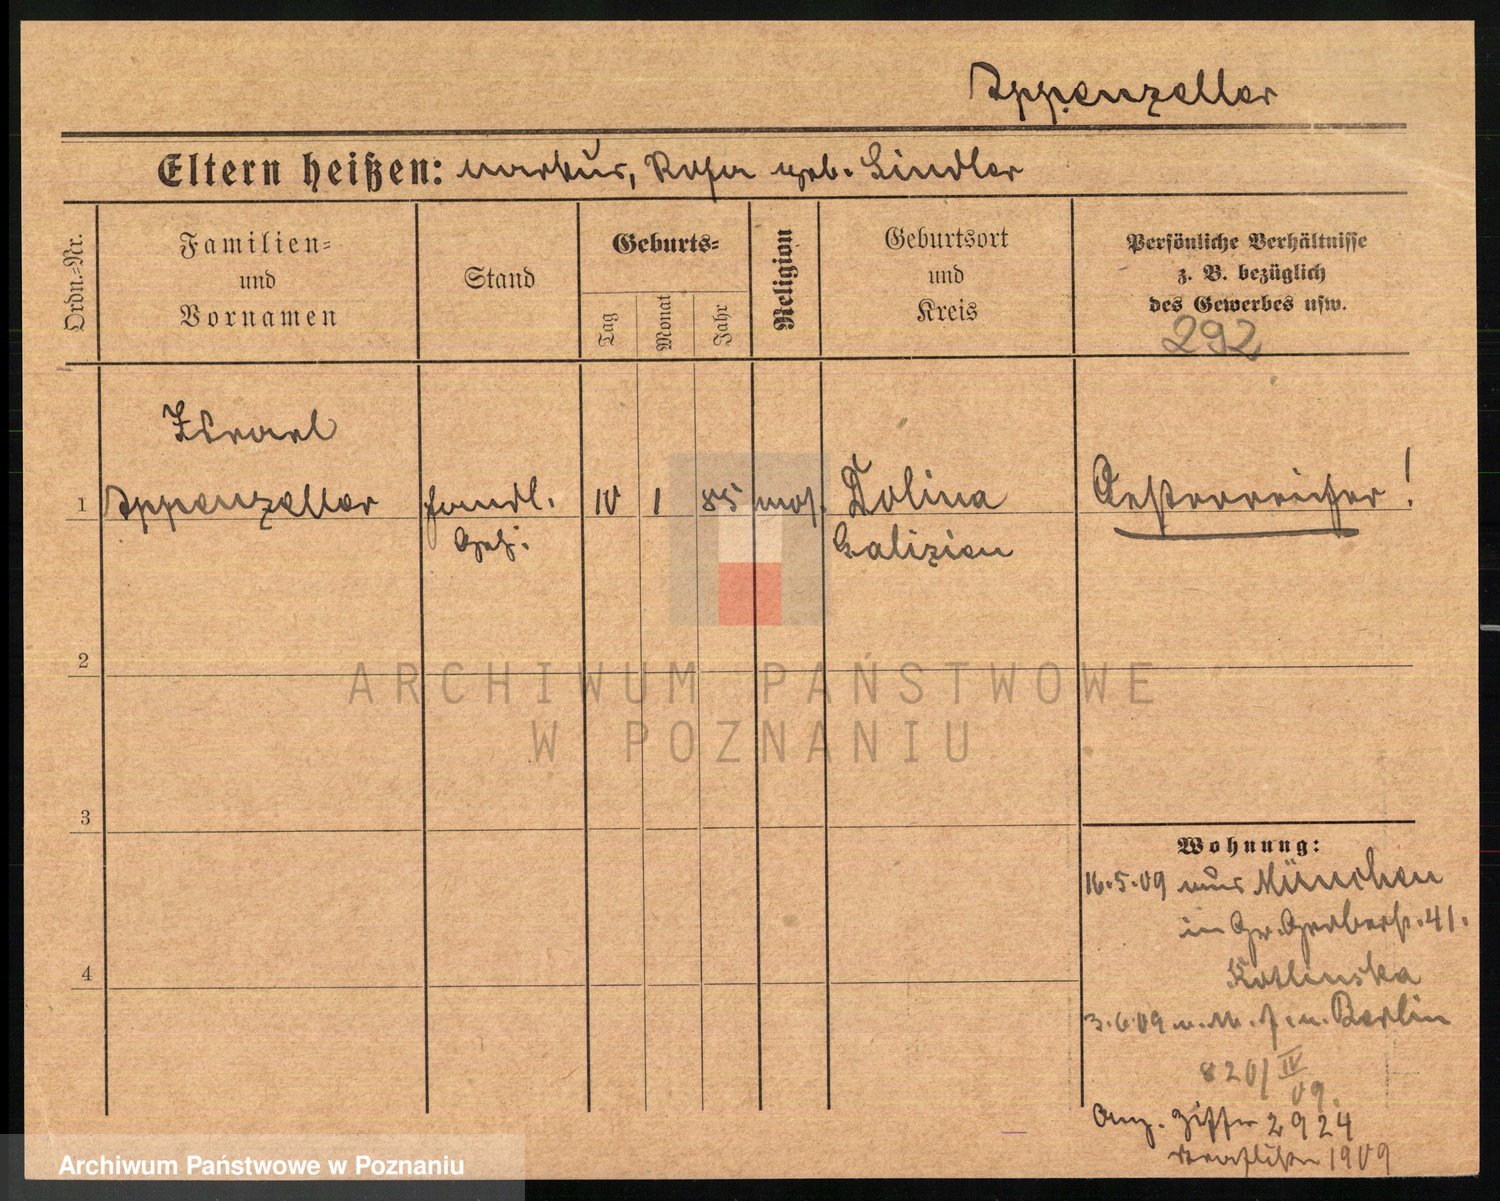 Appenzeller
Eltern heißen: Markus, Rosa geb. Lindler
Ordn.=Nr.
Familien=
und
Vornamen
Stand
Geburts=
Tag
Monat
Jahr
Religion
Geburtsort
und
Kreis
Persönliche Verhältnisse
z. B. bezüglich
des Gewerbes usw.
292
Israel
1 Appenzeller handl. 10 1 85 mos. Dolina Oesterreicher!
Geh. Galizien
2
3
4
Wohnung:
16.5.09 aus München
in Gr. Gerberstr. 41.
Kotlinska
3.6.09 n. Berlin
8201 IV
09.
Anz. Ziffer 2924
1909
ARCHIWUM PAŃSTWOWE
W POZNANIU
Archiwum Państwowe w Poznaniu